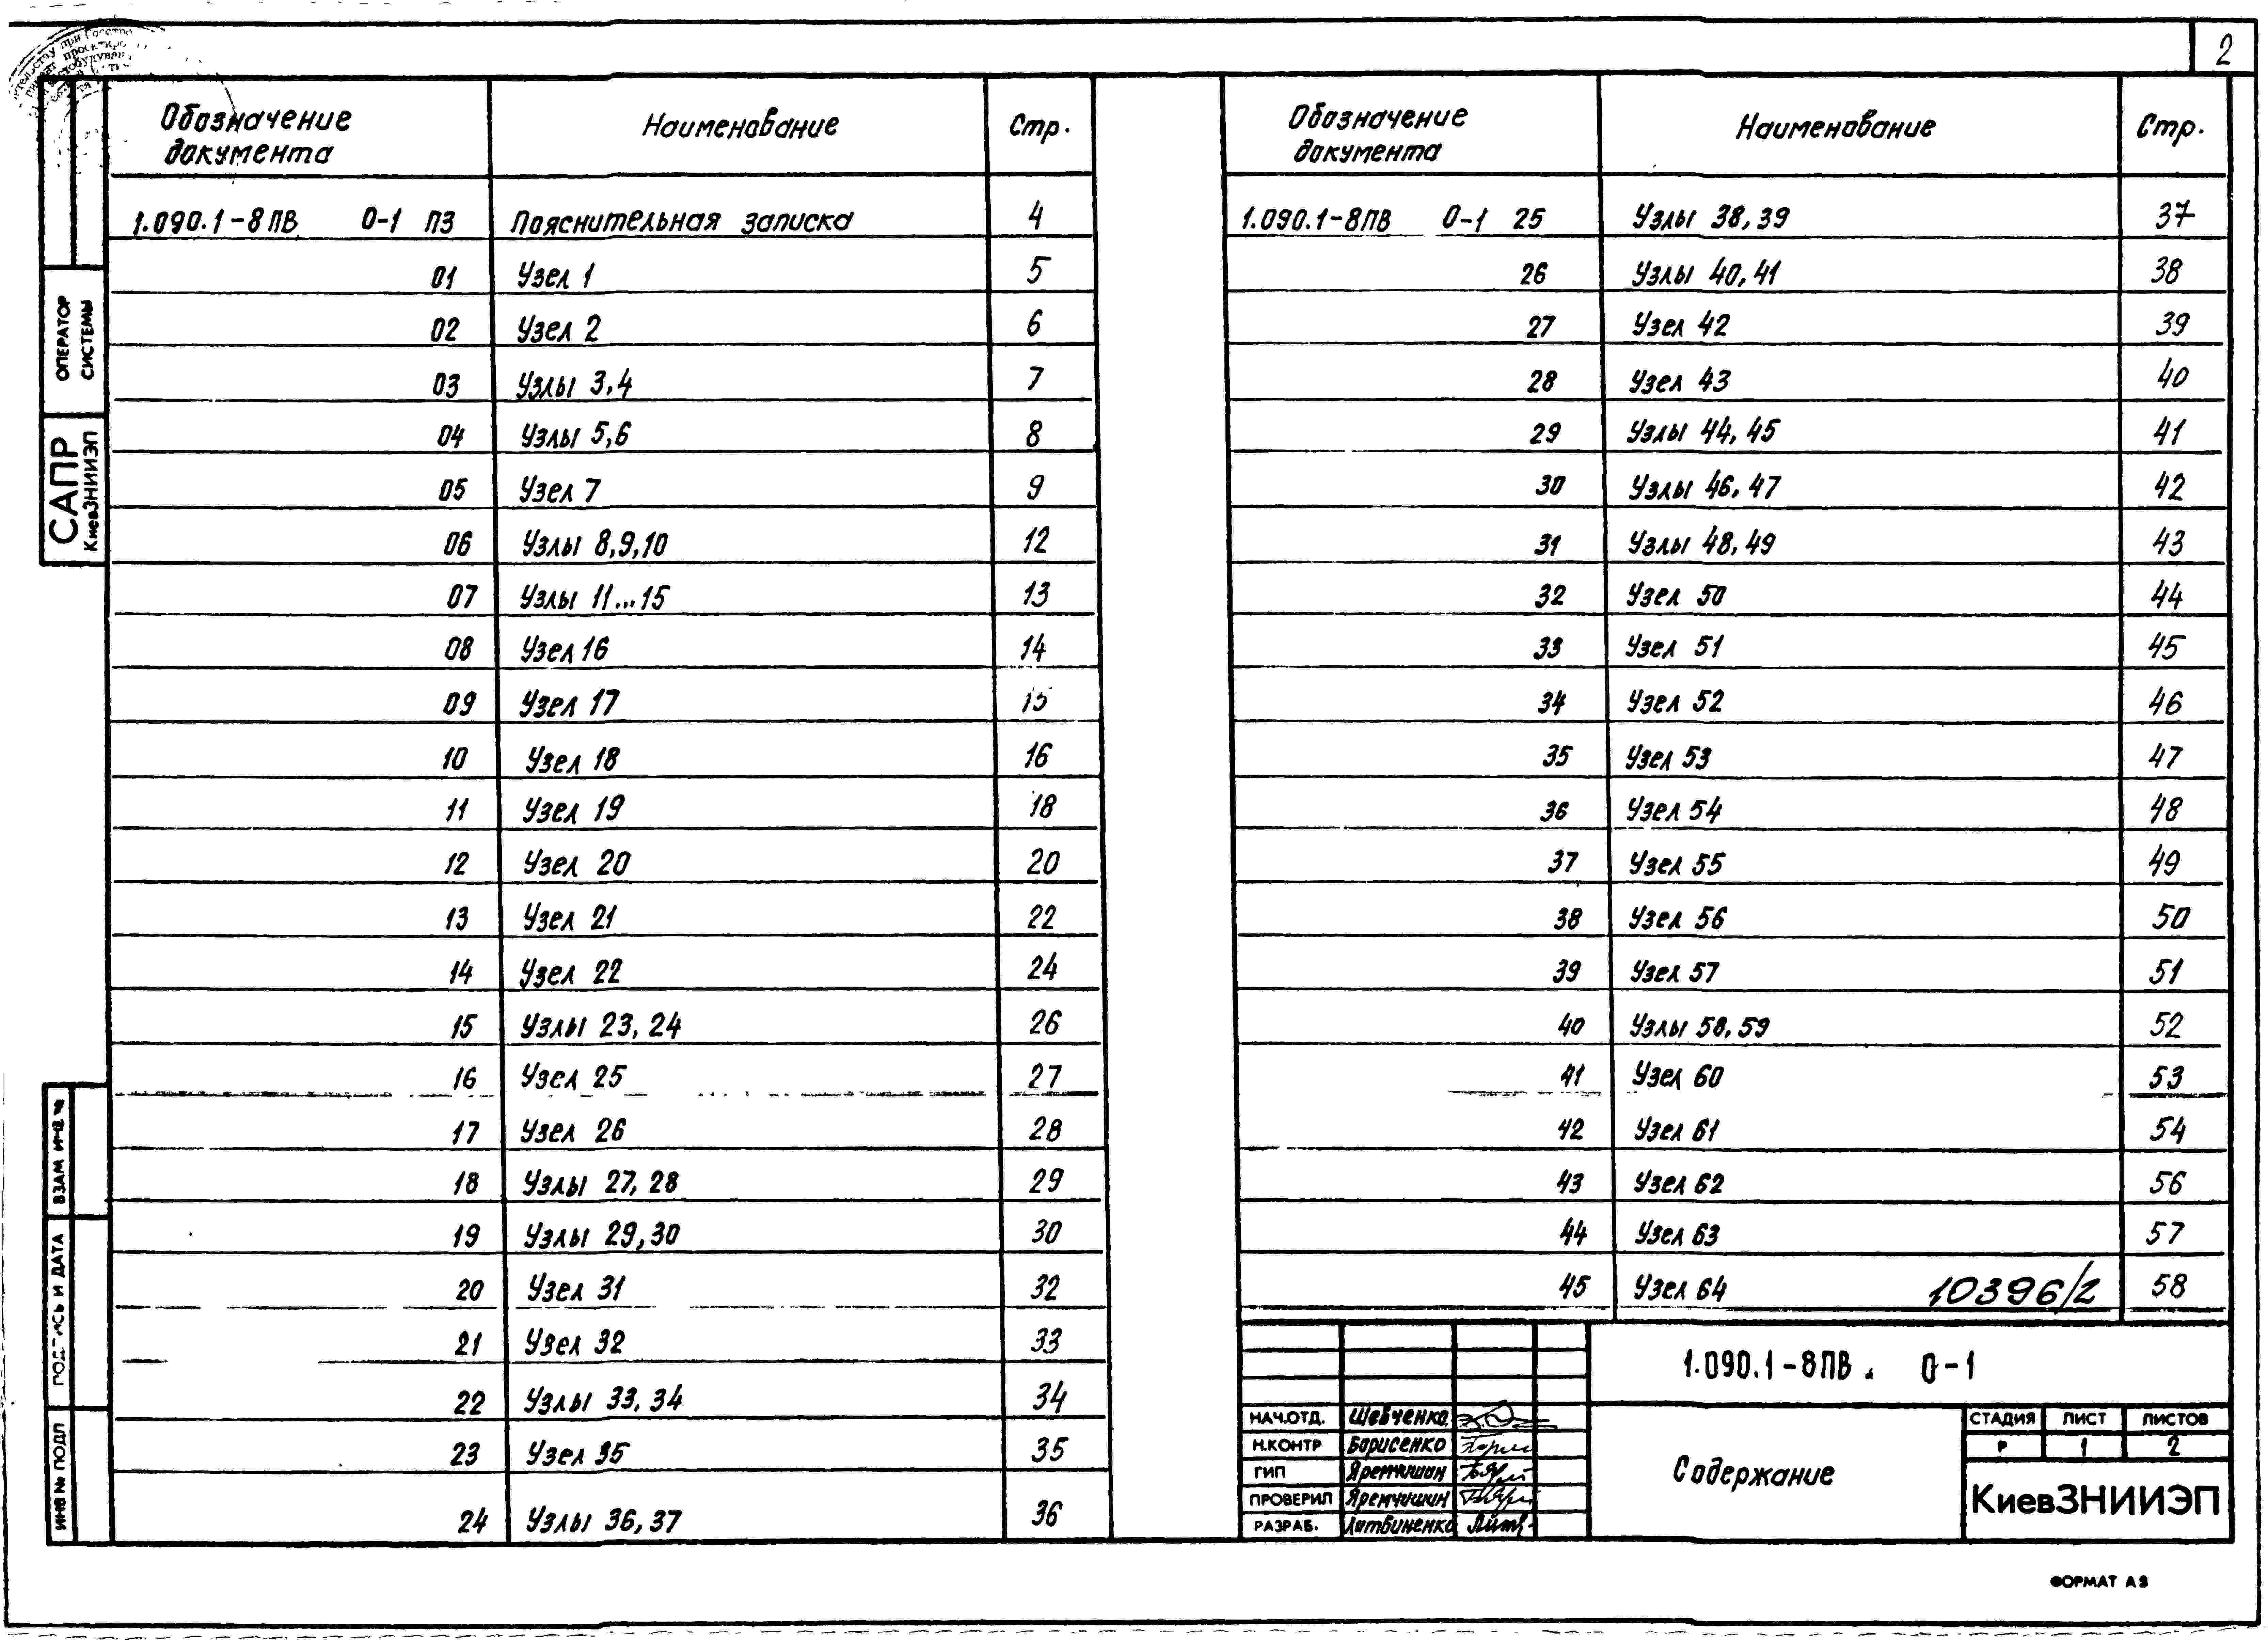 2
Обозначение документа Наименование Стр.
1.090.1-8ПВ 0-1 ПЗ Пояснительная записка 4
01 Узел 1 5
02 Узел 2 6
03 Узлы 3,4 7
04 Узлы 5,6 8
05 Узел 7 9
06 Узлы 8,9,10 12
07 Узлы 11...15 13
08 Узел 16 14
09 Узел 17 15
10 Узел 18 16
11 Узел 19 18
12 Узел 20 20
13 Узел 21 22
14 Узел 22 24
15 Узлы 23, 24 26
16 Узел 25 27
17 Узел 26 28
18 Узлы 27, 28 29
19 Узлы 29,30 30
20 Узел 31 32
21 Узел 32 33
22 Узлы 33, 34 34
23 Узел 35 35
24 Узлы 36, 37 36
Обозначение документа Наименование Стр.
1.090.1-8ПВ 0-1 25 Узлы 38,39 37
26 Узлы 40,41 38
27 Узел 42 39
28 Узел 43 40
29 Узлы 44, 45 41
30 Узлы 46, 47 42
31 Узлы 48, 49 43
32 Узел 50 44
33 Узел 51 45
34 Узел 52 46
35 Узел 53 47
36 Узел 54 48
37 Узел 55 49
38 Узел 56 50
39 Узел 57 51
40 Узлы 58,59 52
41 Узел 60 53
42 Узел 61 54
43 Узел 62 56
44 Узел 63 57
45 Узел 64 58
10396/2
1.090.1-8ПВ. 0-1
НАЧ.ОТД. Шевченко
Н.КОНТР Борисенко
ГИП Яремчишин
ПРОВЕРИЛ Яремчишин
РАЗРАБ. Литвиненко
Содержание
СТАДИЯ ЛИСТ ЛИСТОВ
Р 1 2
КиевЗНИИЭП
ФОРМАТ А3
ОПЕРАТОР СИСТЕМЫ
САПР
КиевЗНИИЭП
ВЗАМ ИНВ №
ПОДПИСЬ И ДАТА
ИНВ № ПОДЛ